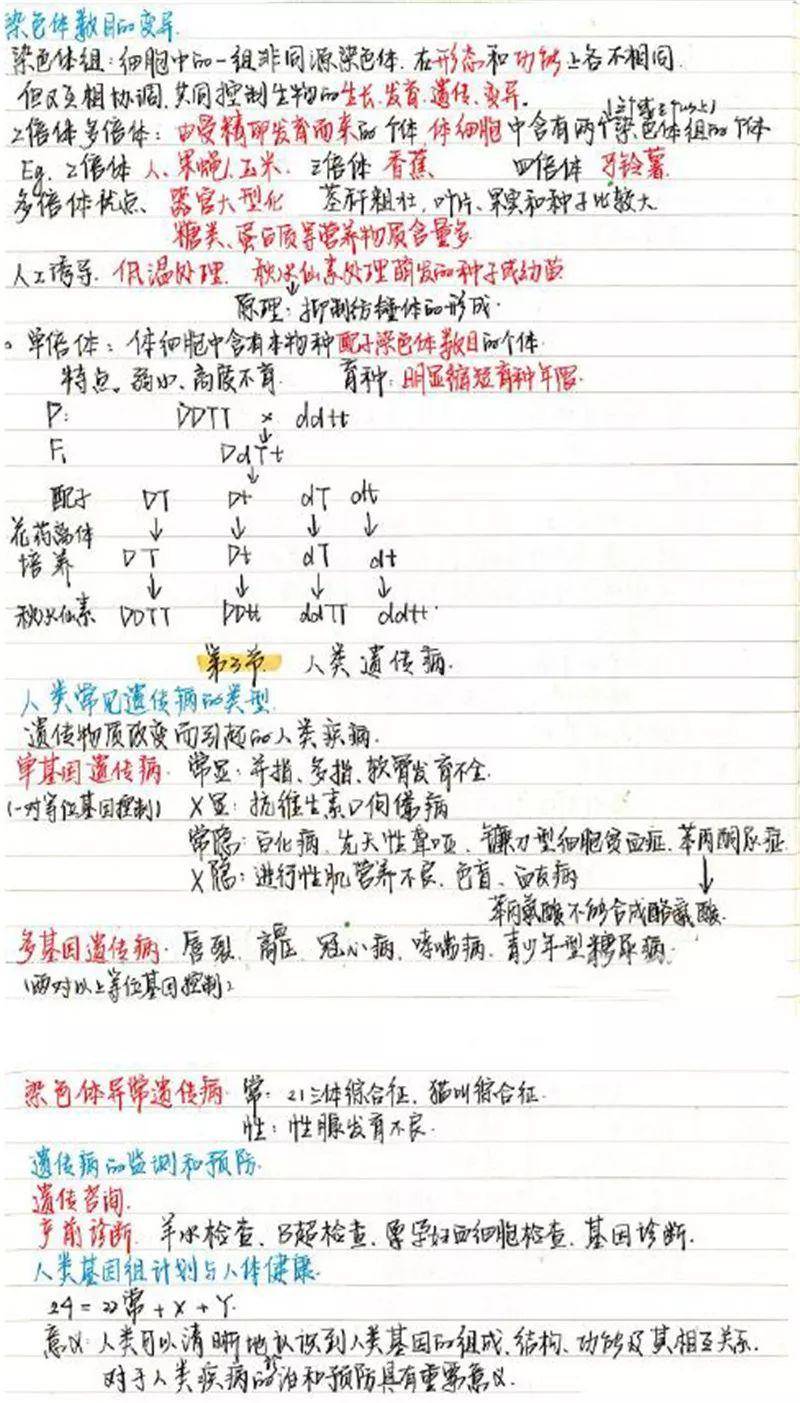 染色体数目的变异
染色体组：细胞中的一组非同源染色体，在形态和功能上各不相同
但又互相协调，共同控制生物的生长、发育、遗传、变异。
(三个或三个以上)
2倍体多倍体：由受精卵发育而来的个体 体细胞中含有两个染色体组的个体
Eg. 2倍体 人、果蝇、玉米. 三倍体 香蕉 四倍体 马铃薯.
多倍体优点、器官大型化 茎秆粗壮，叶片、果实和种子比较大
糖类、蛋白质等营养物质含量多
人工诱导. 低温处理. 秋水仙素处理萌发的种子或幼苗
↓
原理：抑制纺锤体的形成.
。单倍体：体细胞中含有本物种配子染色体数目的个体.
特点、弱小、高度不育. 育种：明显缩短育种年限.
P: DDTT × ddtt
↓
F₁ DdTt
↓
配子 DT Dt dT dt
↓ ↓ ↓ ↓
花药离体
培养 DT Dt dT dt
↓ ↓ ↓ ↓
秋水仙素 DDTT DDtt ddTT ddtt.
第3节 人类遗传病.
人类常见遗传病的类型.
遗传物质改变而引起的人类疾病.
单基因遗传病. 常显：并指、多指、软骨发育不全.
(一对等位基因控制) X显：抗维生素D佝偻病
常隐：白化病、先天性聋哑、镰刀型细胞贫血症、苯丙酮尿症.
X隐：进行性肌营养不良、色盲、血友病 ↓
苯丙氨酸不能合成酪氨酸.
多基因遗传病. 唇裂、高压、冠心病、哮喘病、青少年型糖尿病.
(两对以上等位基因控制)
染色体异常遗传病. 常：21三体综合征、猫叫综合征.
性：性腺发育不良.
遗传病的监测和预防.
遗传咨询.
产前诊断. 羊水检查、B超检查、孕妇血细胞检查、基因诊断.
人类基因组计划与人体健康.
24=22常+X+Y.
意义：人类可以清晰地认识到人类基因的组成、结构、功能及其相互关系.
对于人类疾病的诊治和预防具有重要意义.